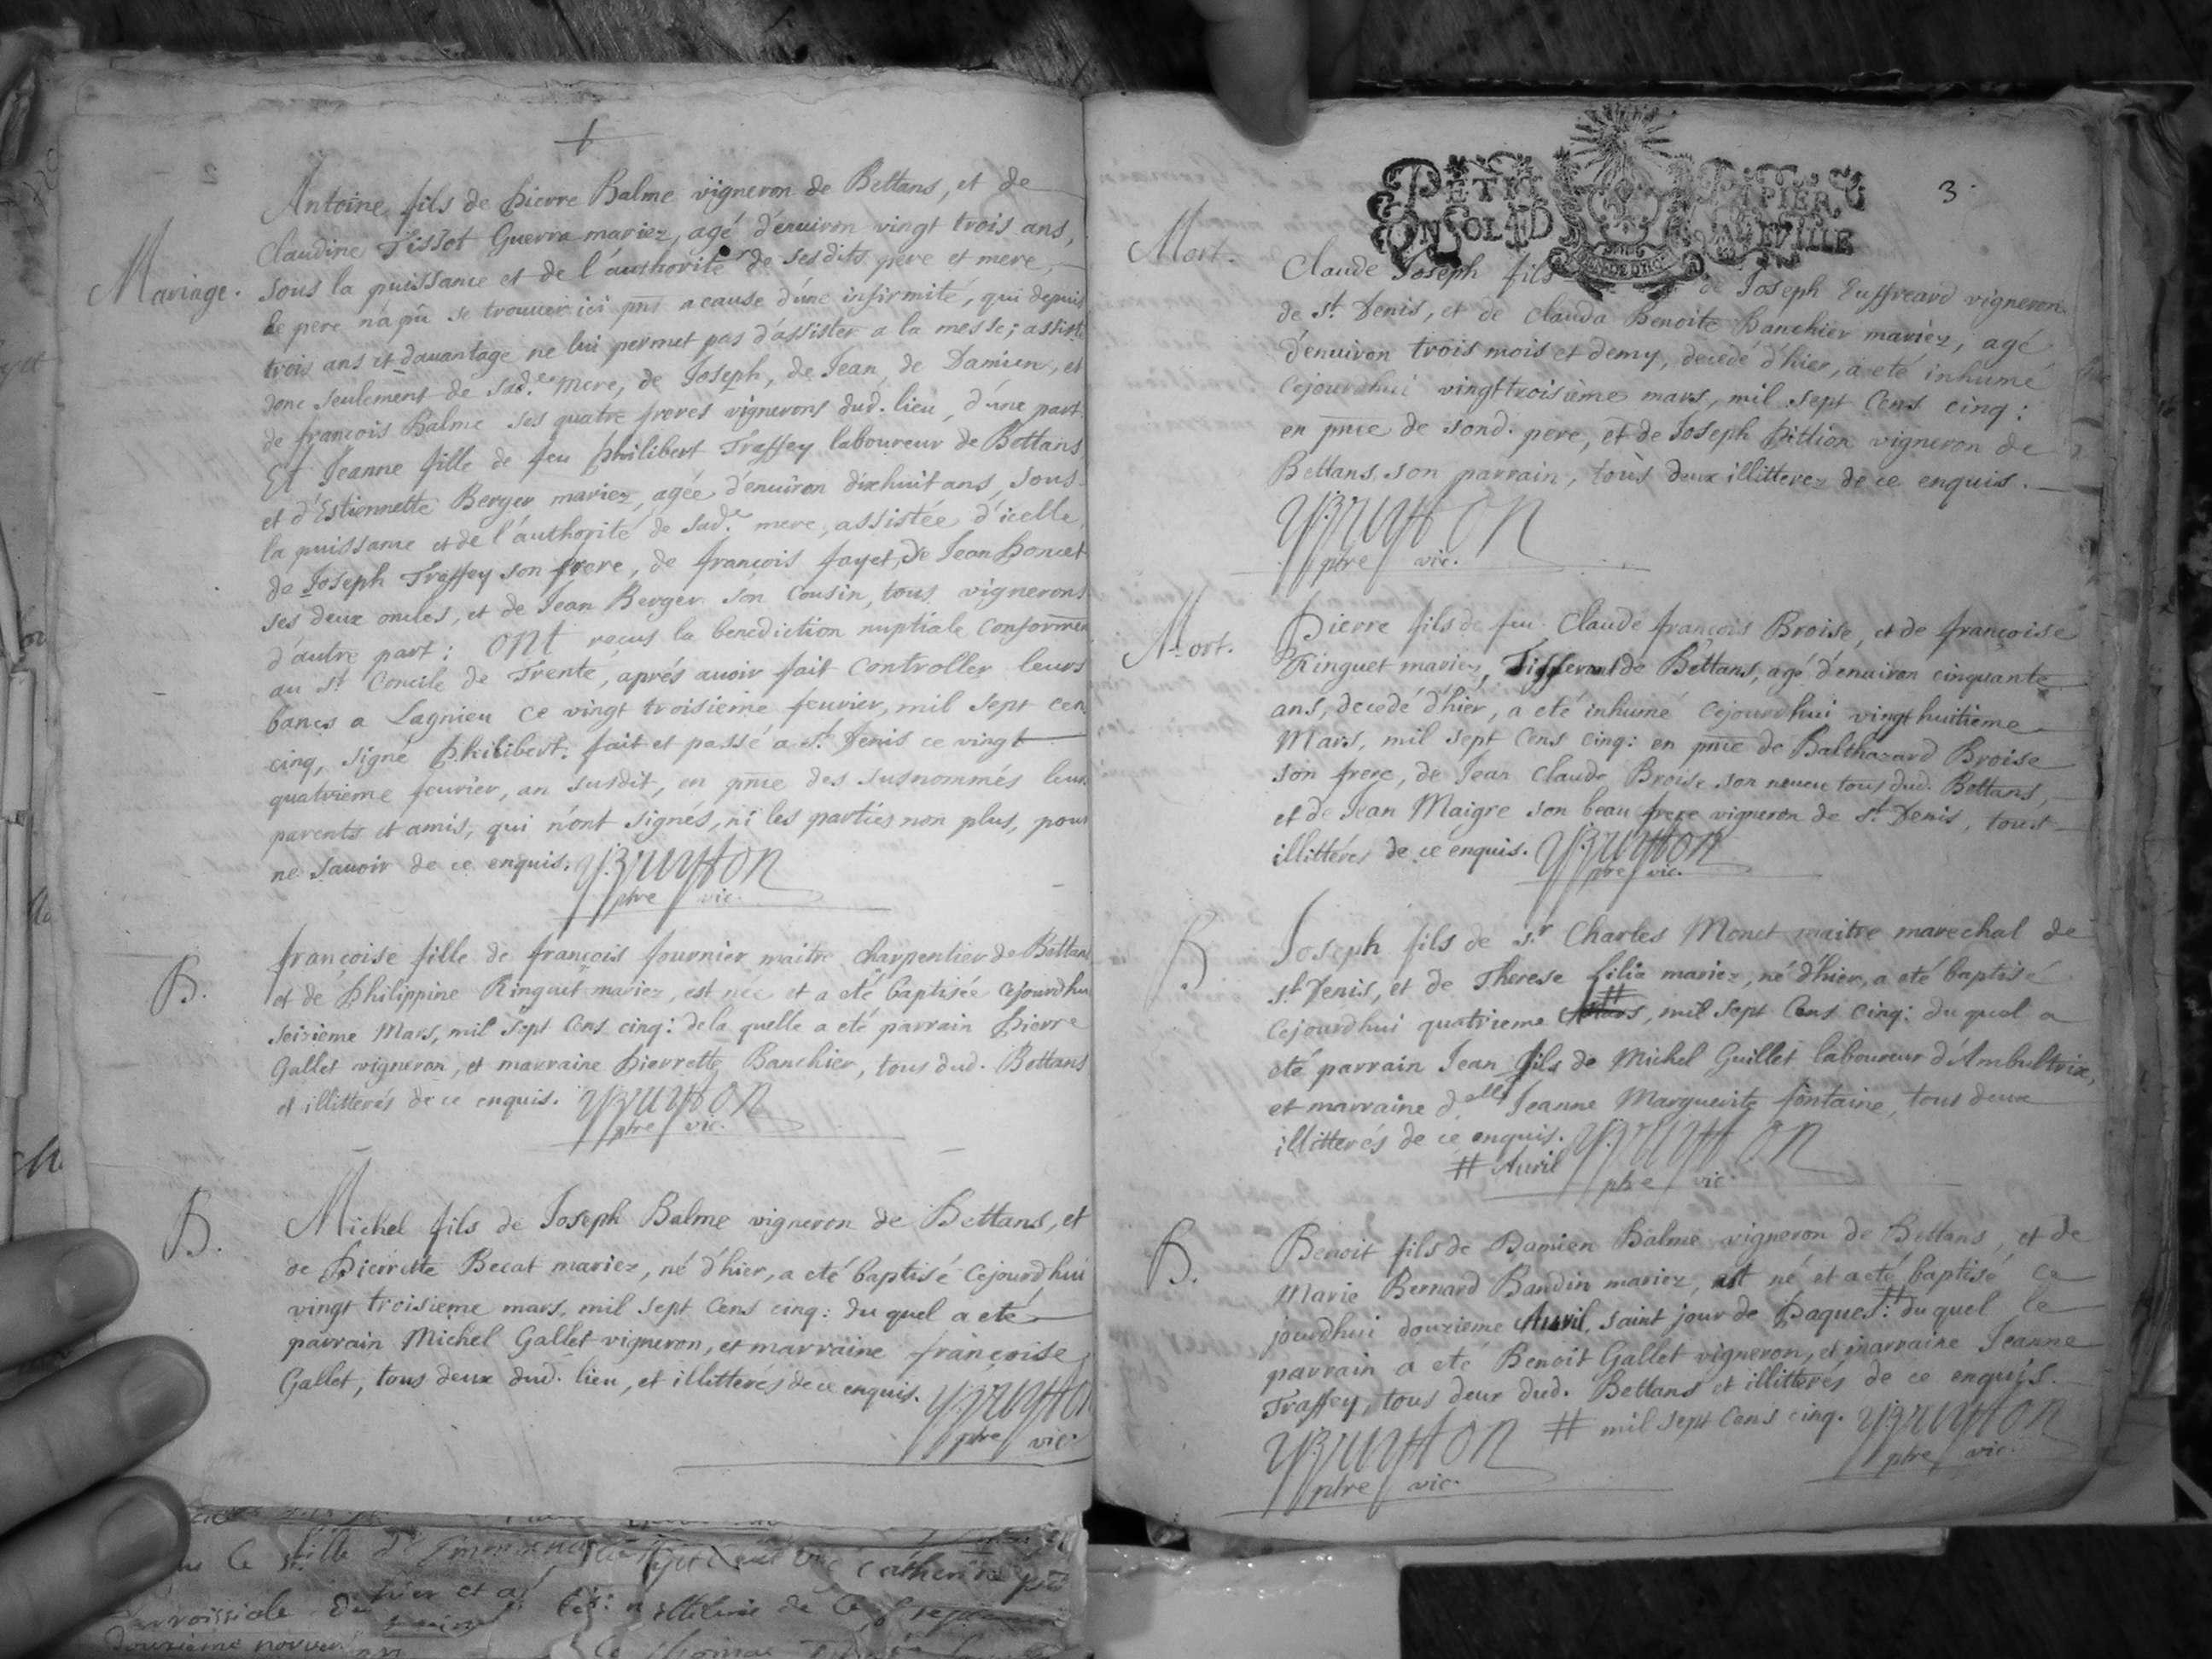 Mariage.
Antoine fils de Pierre Balme vigneron de Bettans, et de
Claudine Tissot Guerra mariez, agé d'enuiron vingt trois ans,
sous la puissance et de l'authorité de sesdits pere et mere,
le pere n'a pû se trouuer ici pnt a cause d'une infirmité, qui depuis
trois ans et dauantage ne lui permet pas d'assister a la messe; assisté
donc seulement de sad.e mere, de Joseph, de Jean, de Damien, et
de françois Balme ses quatre freres vignerons dud. lieu, d'une part.
Et Jeanne fille de feu Philibert Traffey laboureur de Bettans
et d'Estiennette Berger mariez, agée d'enuiron dixhuit ans, sous
la puissance et de l'authorité de sad.e mere, assistée d'icelle,
de Joseph Traffey son frere, de françois fayet, de Jean Poncet
ses deux oncles, et de Jean Berger son Cousin, tous vignerons
d'autre part; ont reçus la benediction nuptiale Conformem
au st Concile de Trente, aprés auoir fait Controller leurs
bancs a Lagnieu ce vingt troisieme feurier, mil sept cen
cinq, signé Philibert. fait et passé a st Denis ce vingt
quatrieme feurier, an susdit, en pnce des susnommés leurs
parents et amis, qui n'ont signés, ni les parties non plus, pour
ne sauoir de ce enquis. Bruyson
ptre vic.
B.
françoise fille de françois fournier maitre charpentier de Bettans
et de Philippine Ringuet mariez, est née et a eté baptisée cejourdhui
seizieme Mars, mil sept Cens cinq: de la quelle a eté parrain Pierre
Gallet vigneron, et marraine Pierrette Banchier, tous dud. Bettans
et illitterés de ce enquis. Bruyson
ptre vic.
B.
Michel fils de Joseph Balme vigneron de Bettans, et
de Pierrette Becat mariez, né d'hier, a eté baptisé Cejourd'hui
vingt troisieme mars, mil sept Cens cinq: du quel a eté
parrain Michel Gallet vigneron, et marraine françoise
Gallet, tous deux dud. lieu, et illitterés de ce enquis. Bruyson
ptre vic.
PETIT PAPIER
3.
Mort.
Claude Joseph fils de Joseph vigneron
de st Denis, et de Clauda Benoite Banchier mariez, agé
d'enuiron trois mois et demy, decedé d'hier, a eté inhumé
Cejourdhui vingt troisieme mars, mil sept Cens cinq:
en pnce de sond. pere, et de Joseph Pittion vigneron de
Bettans, son parrain, tous deux illitterez de ce enquis.
Bruyson
ptre vic.
Mort.
Pierre fils de feu Claude françois Broise, et de françoise
Ringuet mariez, de Bettans, agé d'enuiron cinquante
ans, decedé d'hier, a eté inhumé Cejourdhui vingt huitieme
Mars, mil sept Cens cinq: en pnce de Balthazard Broise
son frere, de Jean Claude Broise son neueu tous dud. Bettans,
et de Jean Maigre son beau frere vigneron de st Denis, tous
illitterés de ce enquis. Bruyson
ptre vic.
B.
Joseph fils de sr Charles Monet maitre marechal de
st Denis, et de Therese filia mariez, né d'hier, a eté baptisé
Cejourdhui quatrieme # Mars, mil sept Cens cinq: du quel a
eté parrain Jean fils de Michel Guillet laboureur d'Ambultrix,
et marraine d.elle Jeanne Marguerite fontaine, tous deux
illitterés de ce enquis. Bruyson
# Auril
ptre vic.
B.
Benoit fils de Damien Balme vigneron de Bettans, et de
Marie Bernard Bandin mariez, est né et a eté baptisé ce
jourdhui douzieme Auril, saint jour de Paques #: du quel le
parrain a eté Benoit Gallet vigneron, et marraine Jeanne
Traffey, tous deux dud. Bettans et illitterés de ce enquis.
# mil sept Cens cinq. Bruyson
ptre vic.
Bruyson
ptre vic.